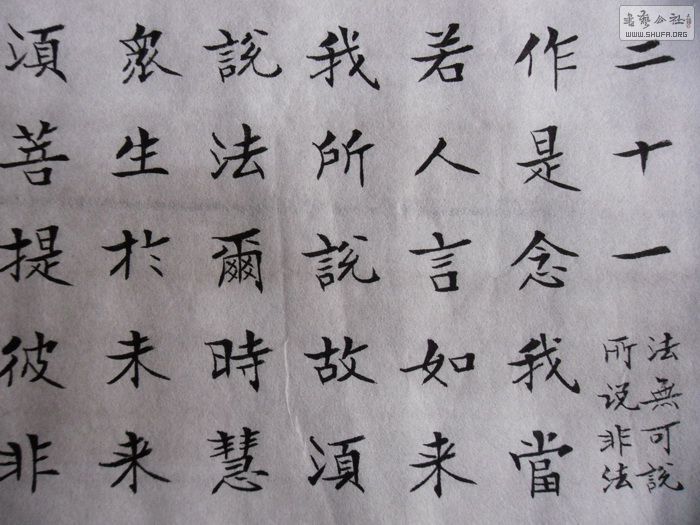 二十一
法無可說
所说非法
作是念我當
若人言如来
我所說故湏
說法爾時慧
衆生於未来
湏菩提彼非
書藝公社
WWW.SHUFA.ORG